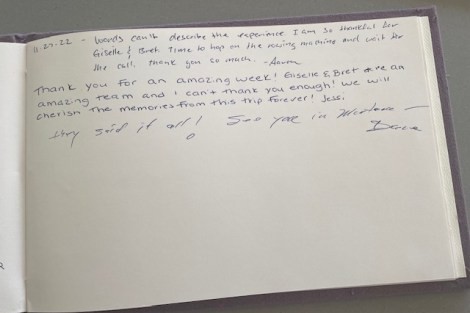 11-27-22 - words can't describe the experience I am so thankful for
Giselle & Bret. Time to hop on the rowing machine and wait for
the call. Thank you so much. -
Thank you for an amazing week! Giselle & Bret are an
amazing team and I can't thank you enough! We will
cherish the memories from this trip forever! Jessi
They said it all! See you in